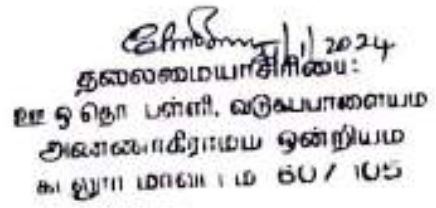 1/1/2024
தலைமையாசிரியை:
ஊ ஒ தொ பள்ளி, வடுகபாளையம்
அண்ணாகிராமம் ஒன்றியம்
கடலூர் மாவட்டம் 607 105